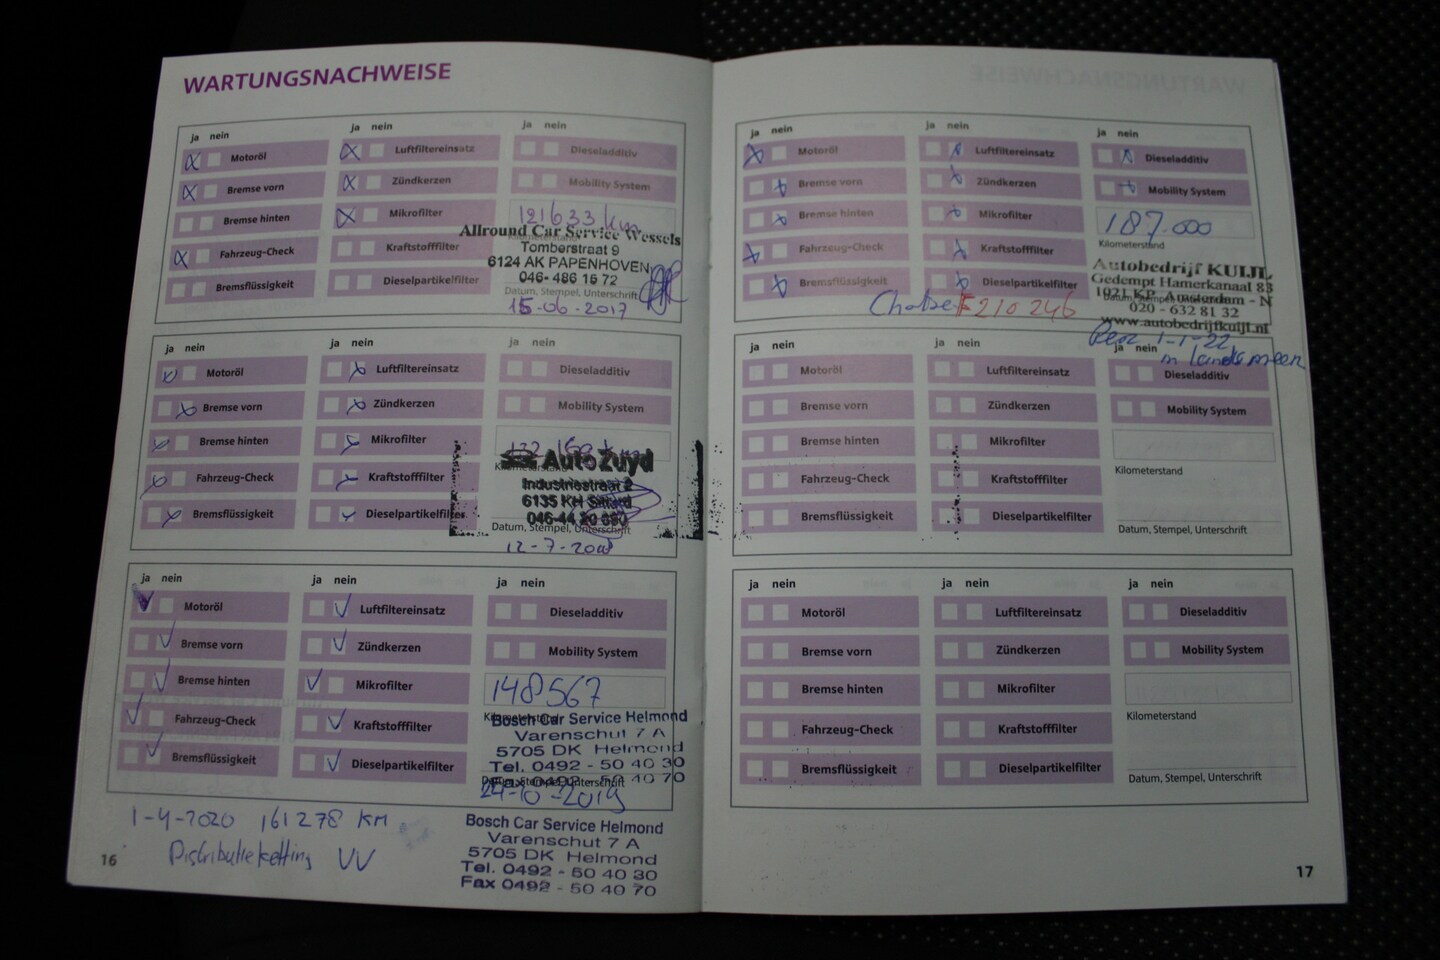 WARTUNGSNACHWEISE
ja nein
Motoröl
Bremse vorn
Bremse hinten
Fahrzeug-Check
Bremsflüssigkeit
ja nein
Luftfiltereinsatz
Zündkerzen
Mikrofilter
Kraftstofffilter
Dieselpartikelfilter
ja nein
Dieseladditiv
Mobility System
121633 km
Allround Car Service Wessels
Tomberstraat 9
6124 AK PAPENHOVEN
046- 486 15 72
Datum, Stempel, Unterschrift
15-06-2017
ja nein
Motoröl
Bremse vorn
Bremse hinten
Fahrzeug-Check
Bremsflüssigkeit
ja nein
Luftfiltereinsatz
Zündkerzen
Mikrofilter
Kraftstofffilter
Dieselpartikelfilter
ja nein
Dieseladditiv
Mobility System
AutoZuyd
Industriestraat 2
6135 KH Sittard
046-44 20 680
Datum, Stempel, Unterschrift
12-7-2018
ja nein
Motoröl
Bremse vorn
Bremse hinten
Fahrzeug-Check
Bremsflüssigkeit
ja nein
Luftfiltereinsatz
Zündkerzen
Mikrofilter
Kraftstofffilter
Dieselpartikelfilter
ja nein
Dieseladditiv
Mobility System
148567
Kilometerstand
Bosch Car Service Helmond
Varenschut 7 A
5705 DK Helmond
Tel. 0492 - 50 40 30
Fax 0492 - 50 40 70
Datum, Stempel, Unterschrift
24-10-2019
1-4-2020 161278 KM
Distributieketting VV
Bosch Car Service Helmond
Varenschut 7 A
5705 DK Helmond
Tel. 0492 - 50 40 30
Fax 0492 - 50 40 70
16
ja nein
Motoröl
Bremse vorn
Bremse hinten
Fahrzeug-Check
Bremsflüssigkeit
ja nein
Luftfiltereinsatz
Zündkerzen
Mikrofilter
Kraftstofffilter
Dieselpartikelfilter
ja nein
Dieseladditiv
Mobility System
187.000
Kilometerstand
Autobedrijf KUIJL
Gedempt Hamerkanaal 83
1021 KP Amsterdam - N
020 - 632 81 32
www.autobedrijfkuijl.nl
210246
1-1-22
in landsmeer
ja nein
Motoröl
Bremse vorn
Bremse hinten
Fahrzeug-Check
Bremsflüssigkeit
ja nein
Luftfiltereinsatz
Zündkerzen
Mikrofilter
Kraftstofffilter
Dieselpartikelfilter
ja nein
Dieseladditiv
Mobility System
Kilometerstand
Datum, Stempel, Unterschrift
ja nein
Motoröl
Bremse vorn
Bremse hinten
Fahrzeug-Check
Bremsflüssigkeit
ja nein
Luftfiltereinsatz
Zündkerzen
Mikrofilter
Kraftstofffilter
Dieselpartikelfilter
ja nein
Dieseladditiv
Mobility System
Kilometerstand
Datum, Stempel, Unterschrift
17